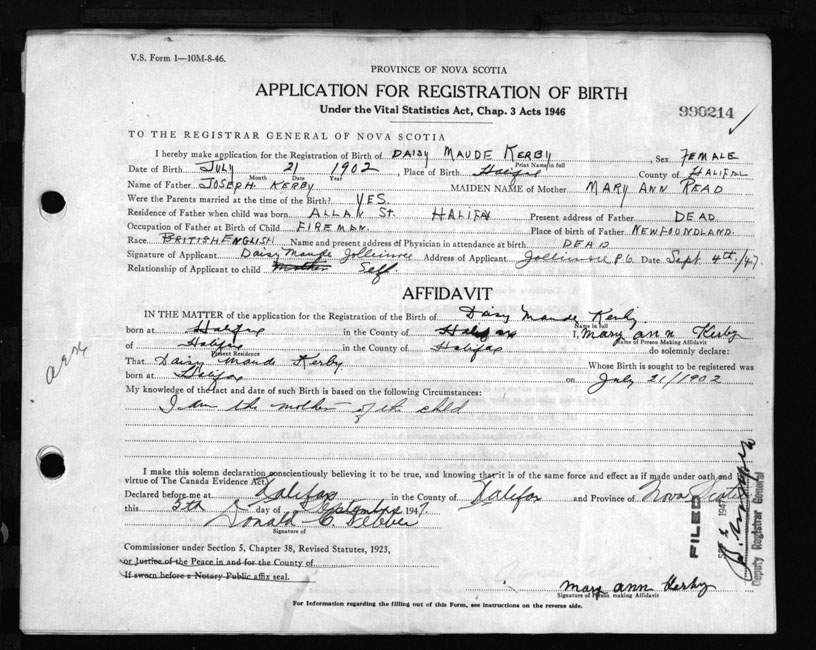 V.S. Form 1—10M-8-46.
PROVINCE OF NOVA SCOTIA
APPLICATION FOR REGISTRATION OF BIRTH
Under the Vital Statistics Act, Chap. 3 Acts 1946
990214
TO THE REGISTRAR GENERAL OF NOVA SCOTIA
I hereby make application for the Registration of Birth of DAISY MAUDE KERBY Sex FEMALE
Print Name in full
Date of Birth JULY 21 1902, Place of Birth Halifax County of HALIFAX
Month Date Year
Name of Father JOSEPH KERBY MAIDEN NAME of Mother MARY ANN READ
Were the Parents married at the time of the Birth? YES.
Residence of Father when child was born ALLAN ST. HALIFAX Present address of Father DEAD.
Occupation of Father at Birth of Child FIREMAN. Place of birth of Father NEWFOUNDLAND.
Race BRITISH ENGLISH Name and present address of Physician in attendance at birth DEAD
Signature of Applicant Daisy Maude Jollimore Address of Applicant Jollimore P.O. Date Sept 4th/47.
Relationship of Applicant to child Mother Self.
AFFIDAVIT
IN THE MATTER of the application for the Registration of Birth of Daisy Maude Kerby
Name in full
born at Halifax in the County of Halifax I, Mary Ann Kerby
Name of Person Making Affidavit
of Halifax in the County of Halifax do solemnly declare:
Present Residence
That Daisy Maude Kerby Whose Birth is sought to be registered was
born at Halifax on July 21/1902
My knowledge of the fact and date of such Birth is based on the following Circumstances:
I am the mother of the child
I make this solemn declaration conscientiously believing it to be true, and knowing that it is of the same force and effect as if made under oath and by
virtue of The Canada Evidence Act.
Declared before me at Halifax in the County of Halifax and Province of Nova Scotia
this 5th day of September 1947.
Donald C Webber
Signature of
Commissioner under Section 5, Chapter 38, Revised Statutes, 1923,
or Justice of the Peace in and for the County of
If sworn before a Notary Public affix seal.
Mary Ann Kerby
Signature of Person making Affidavit
For Information regarding the filling out of this Form, see instructions on the reverse side.
FILED
1947
Deputy Registrar General